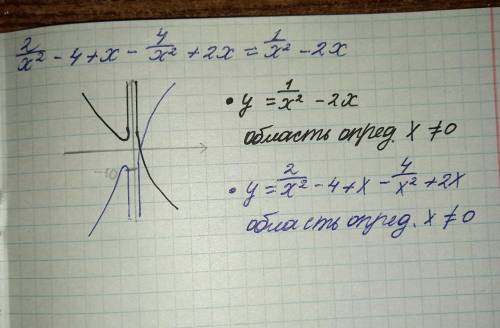 2/x² - 4 + x - 4/x² + 2x = 1/x² - 2x
• y = 1/x² - 2x
область опред. x ≠ 0
• y = 2/x² - 4 + x - 4/x² + 2x
область опред. x ≠ 0